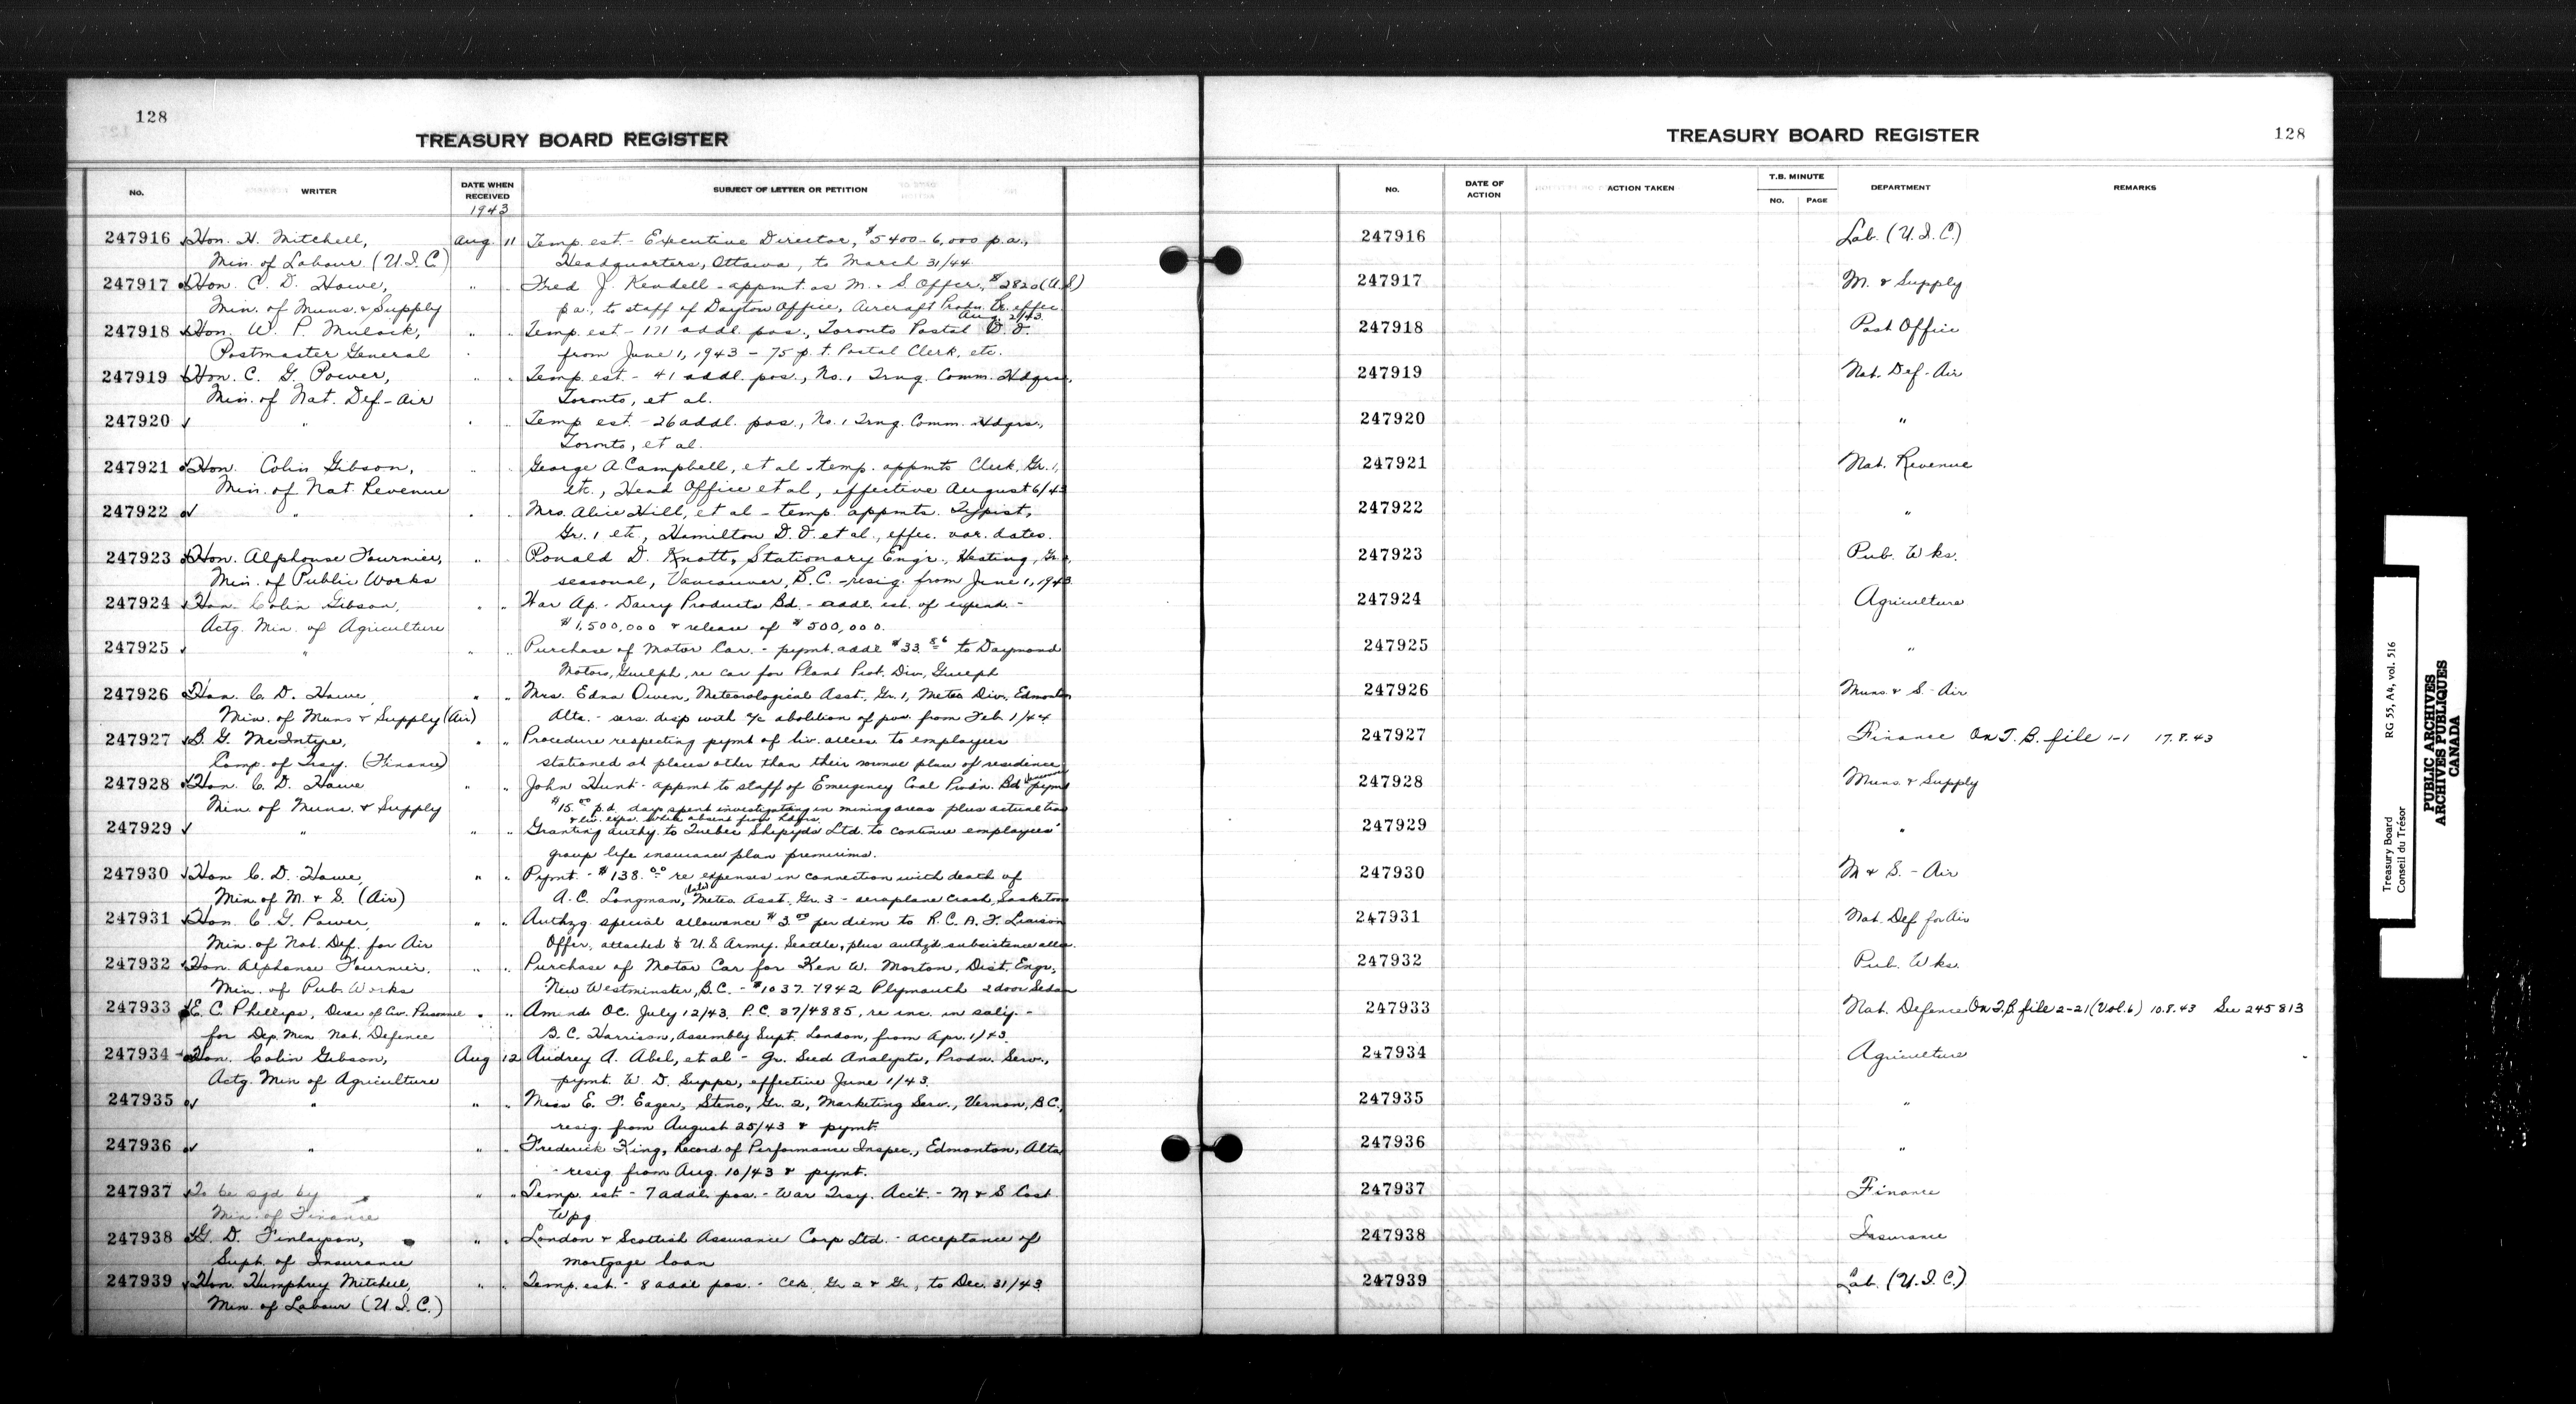 128
TREASURY BOARD REGISTER
No.
WRITER
DATE WHEN RECEIVED
1943
SUBJECT OF LETTER OR PETITION
247916 Hon. H. Mitchell, Aug. 11 Temp. est. - Executive Director, $5400-6,000 p.a.,
Min. of Labour (U.I.C.) Headquarters, Ottawa, to March 31/44
247917 Hon. C. D. Howe, " " Fred J. Kendell - appmt. as M. & S. Offcer, $2820 (U.S)
Min. of Muns. & Supply p.a., to staff of Dayton Office, Aircraft Prodn. Br. effec. Aug. 2/43
247918 Hon. W. P. Mulock, " " Temp. est. - 171 addl. pos., Toronto Postal D. O.
Postmaster General from June 1, 1943 - 75 p.t. Postal Clerk, etc.
247919 Hon. C. G. Power, " " Temp. est. - 41 addl. pos., No. 1 Trng. Comm. Hdqrs.,
Min. of Nat. Def. - Air Toronto, et al.
247920 " " " Temp. est. - 26 addl. pos., No. 1 Trng. Comm. Hdqrs.,
Toronto, et al.
247921 Hon. Colin Gibson, " " George A Campbell, et al - temp. appmts Clerk, Gr. 1,
Min. of Nat. Revenue etc., Head Office et al, effective August 6/43
247922 " " " Mrs. Alice Hill, et al - temp. appmts. Typist,
Gr. 1 etc, Hamilton D. O. et al., effec. var. dates.
247923 Hon. Alphonse Fournier, " " Ronald D. Knott, Stationary Eng'r., Heating, Gr.
Min. of Public Works seasonal, Vancouver, B.C. - resig. from June 1, 1943
247924 Hon. Colin Gibson, " " War Ap. - Dairy Products Bd. - addl. est. of expend. -
Actg. Min. of Agriculture $1,500,000 & release of $500,000.
247925 " " " Purchase of Motor Car. - pymt. addl $33.86 to Daymond
Motors, Guelph, re car for Plant Prot. Div, Guelph
247926 Hon. C. D. Howe, " " Mrs. Edna Owen, Meteorological Asst. Gr. 1, Meteo Div. Edmonton
Min. of Muns & Supply (Air) Alta. - sers. disp with a/c abolition of pos. from Feb. 1/44
247927 B. G. McIntyre, " " Procedure respecting pymt of liv. allces. to employees
Comp. of Trsy. (Finance) stationed at places other than their normal place of residence
247928 Hon. C. D. Howe " " John Hunt - appmt to staff of Emergency Coal Prodn. Bd Vancouver pymt
Min. of Muns. & Supply $15.00 p.d. days spent investigating in mining areas plus actual trav
& liv. exps. while absent from hdqrs.
247929 " " " Granting authy. to Quebec Shipyds Ltd. to continue employees'
group life insurance plan premiums.
247930 Hon C. D. Howe, " " Pymt. - $138.00 re expenses in connection with death of
Min. of M. & S. (Air) A. C. Longman, (late) Meteo. Asst. Gr. 3 - aeroplane crash, Saskatoon
247931 Hon. C. G. Power, " " Authzg. special allowance $3.00 per diem to R.C.A.F. Liaison
Min. of Nat. Def. for Air Offcer, attached to U.S Army. Seattle, plus authzd subsistence allce.
247932 Hon. Alphonse Fournier, " " Purchase of Motor Car for Ken W. Morton, Dist. Engr,
Min. of Pub. Works New Westminster, B.C. - $1037. 1942 Plymouth 2 door Sedan
247933 E. C. Phillips, Direc of Civ. Personnel " " Amends OC. July 12/43, P.C. 37/4885, re inc. in saly. -
for Dep. Min. Nat. Defence B. C. Harrison, Assembly Supt. London, from Apr. 1/43.
247934 Hon. Colin Gibson, Aug 12 Audrey A. Abel, et al - Gr. Seed Analysts, Prodn. Serv.,
Actg. Min of Agriculture pymt. W. D. Supps, effective June 1/43.
247935 " " " Miss E. F. Eager, Steno, Gr. 2, Marketing Serv., Vernon, B.C.,
resig. from August 25/43 & pymt.
247936 " " " Frederick King, Record of Performance Inspec., Edmonton, Alta
- resig. from Aug. 10/43 & pymt.
247937 To be sgd by " " Temp. est - 7 addl. pos. - War Trsy. Acct. - M & S Cost
Min. of Finance Wpg
247938 G. D. Finlayson, " " London & Scottish Assurance Corp Ltd. - acceptance of
Supt. of Insurance mortgage loan
247939 Hon. Humphrey Mitchell, " " Temp. est. - 8 addl pos. - Clk, Gr 2 & Gr, to Dec. 31/43
Min. of Labour (U.I.C.)
TREASURY BOARD REGISTER
128
No.
DATE OF ACTION
ACTION TAKEN
T.B. MINUTE
No. PAGE
DEPARTMENT
REMARKS
247916 Lab. (U.I.C.)
247917 M. & Supply
247918 Post Office
247919 Nat. Def - Air
247920 "
247921 Nat. Revenue
247922 "
247923 Pub. Wks.
247924 Agriculture
247925 "
247926 Muns. & S. - Air
247927 Finance On T.B. file 1-1 17.8.43
247928 Muns. & Supply
247929 "
247930 M & S. - Air
247931 Nat. Def for Air
247932 Pub. Wks.
247933 Nat. Defence On T.B. file 2-21 (Vol.6) 10.8.43 See 245813
247934 Agriculture
247935 "
247936 "
247937 Finance
247938 Insurance
247939 Lab. (U.I.C.)
Treasury Board RG 55, A4, vol. 516
Conseil du Trésor
PUBLIC ARCHIVES
ARCHIVES PUBLIQUES
CANADA